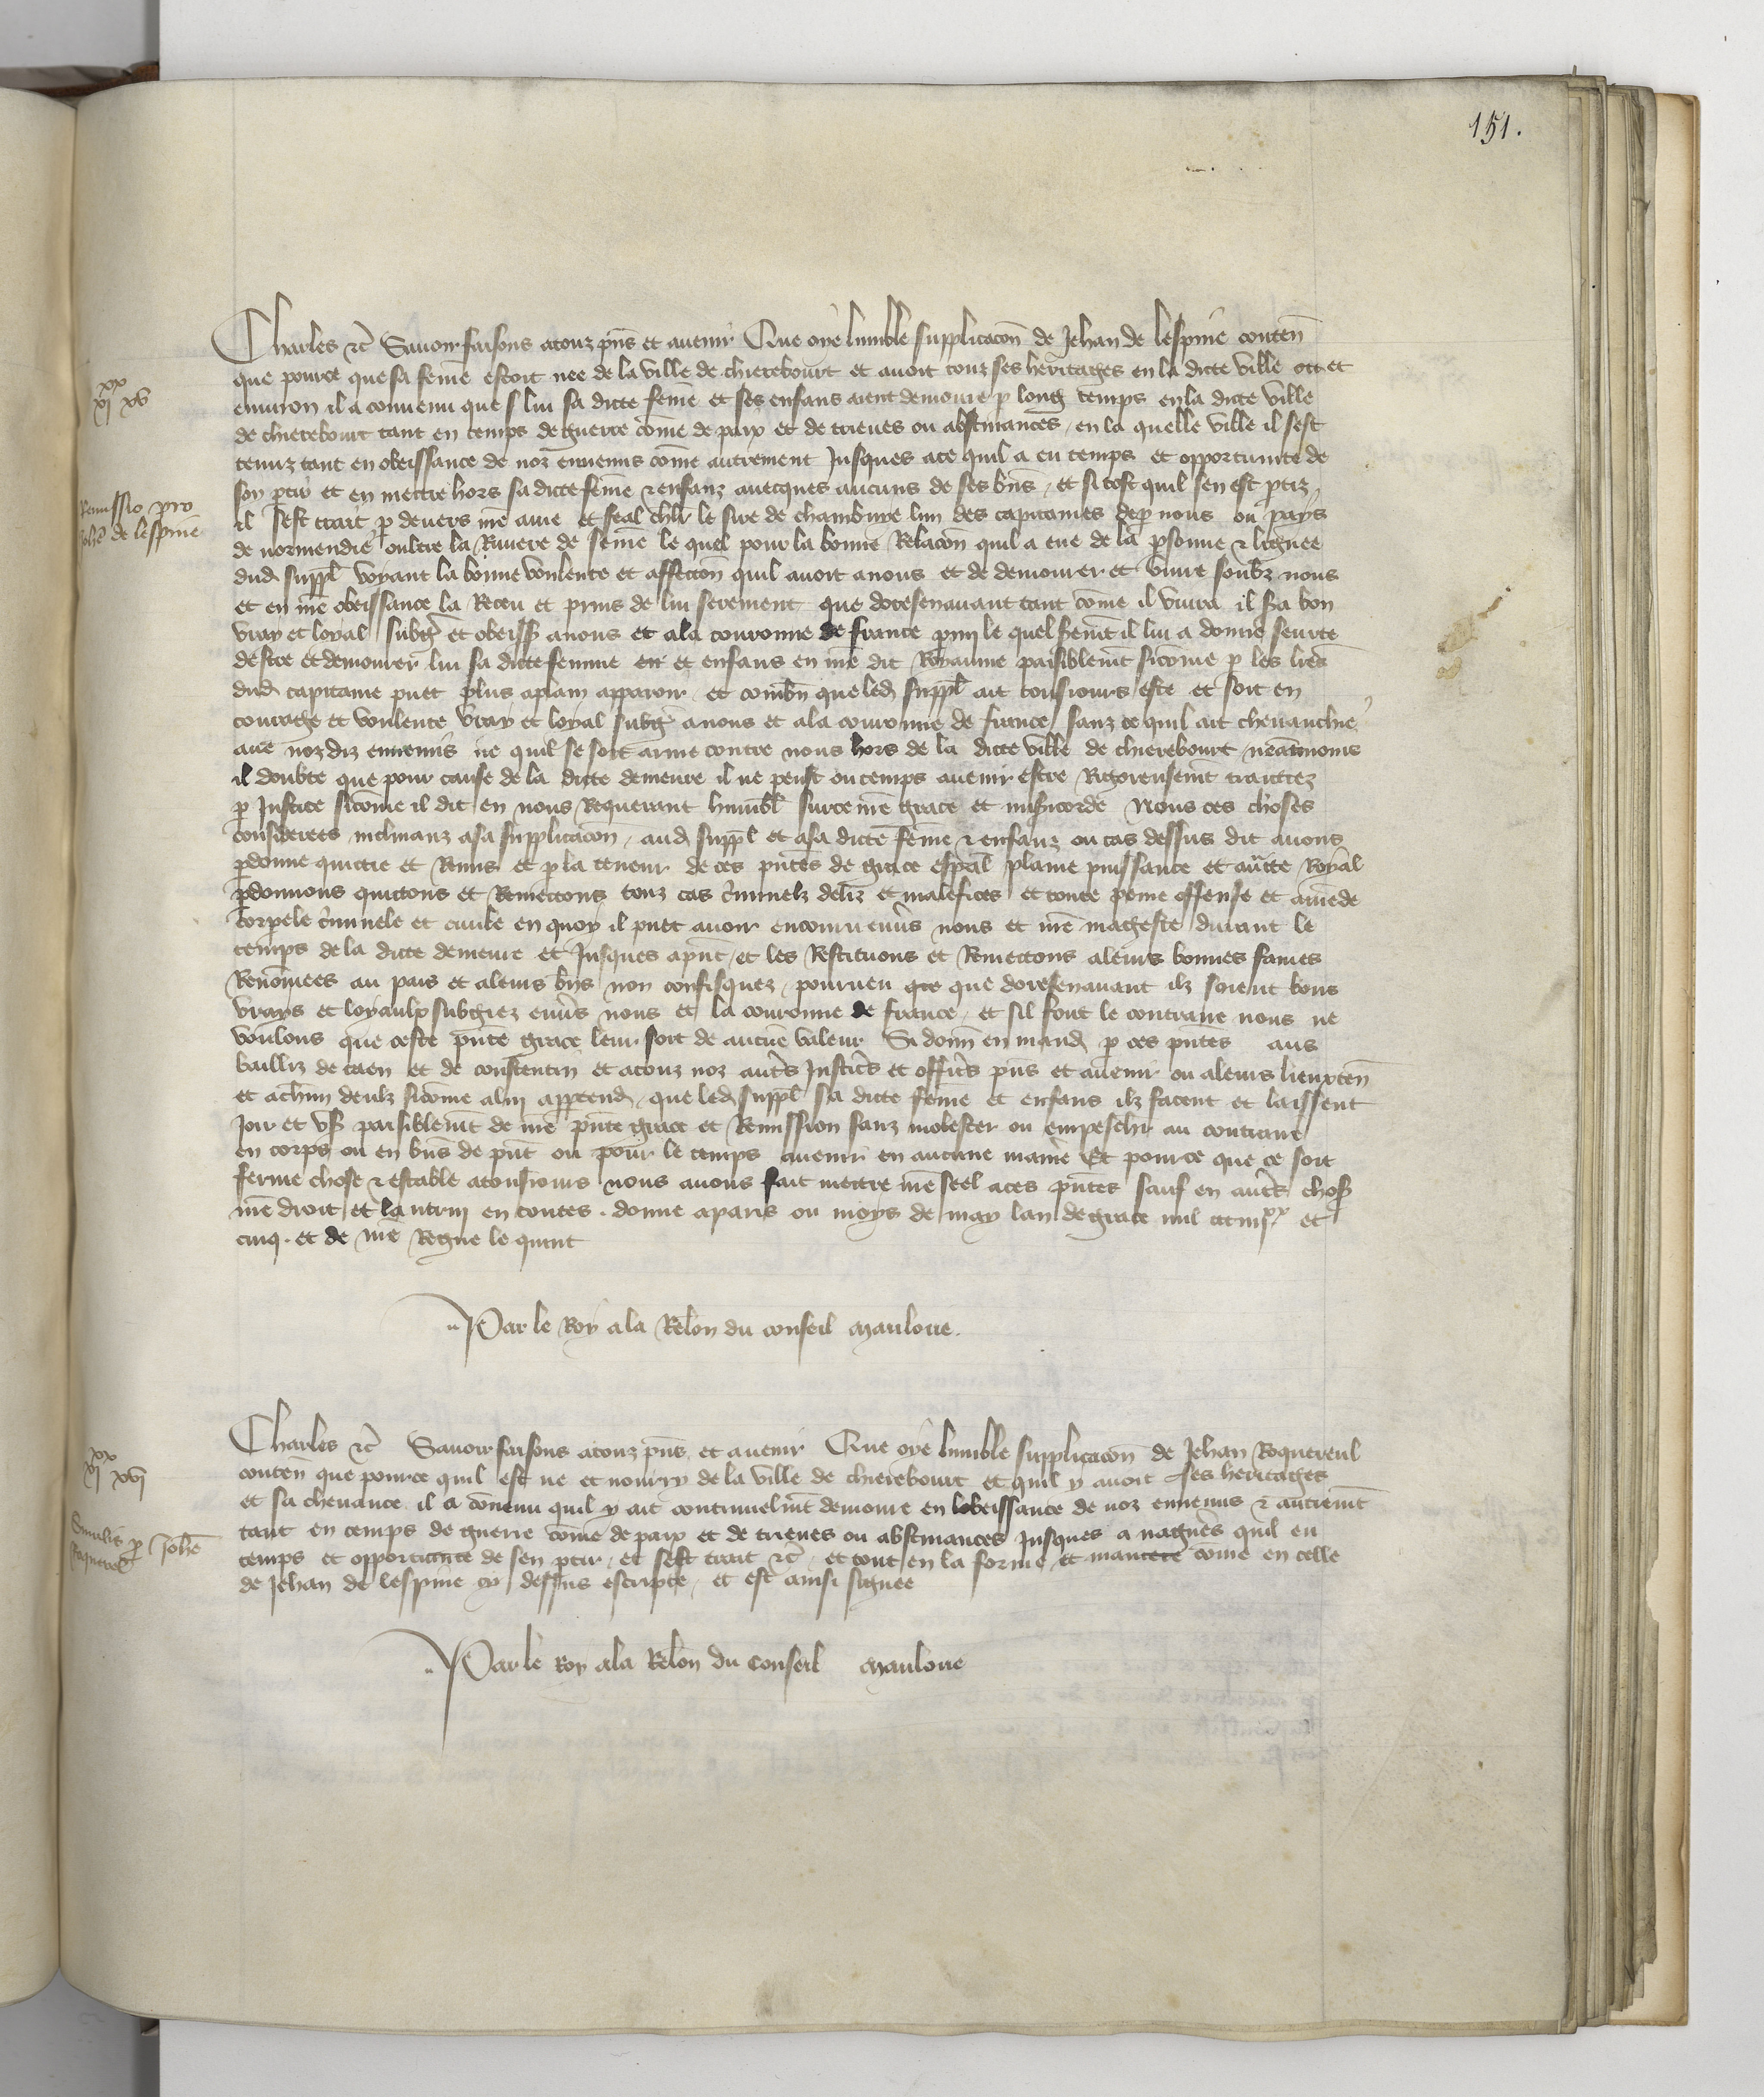 151.
Charles etc̃ Sauoir faisons atouz pñs et auenir Que oye lumble supplicacõn de Jehan de lespine conteñ
que pource que sa fem̃e estoit nee de la ville de chierebourt et auoit touz ses heritages en la dicte ville et
enuiron il a conuenu que lui sa dicte fem̃e et ses enfans aient demoure p long temps en la dicte ville
de chierebourt tant en temps de guerre com̃e de paix et de treues ou abstinances / en la quelle ville il sest
tenuz tant en obeissance de noz ennemis com̃e autrement Jusques ace quil a eu temps et opportunite de
son ptir et en mettre hors sa dicte fem̃e et enfanz auecques aucuns de ses biñs / et si tost quil sen est ptiz
il sest trait p deuers nr̃e ame et feal chlr̃ le sire de chambure lun des capitaines de p nous ou pays
de normendie oultre la Riuiere de seine le quel pour la bonne Relacõn quil a eue de la psonne et lignee
dud suppl̃ voyant la bonne voulente et affectiõn quil auoit anous et de demourer et viure soubz nous
et en nr̃e obeissance la Receu et prins de lui serement que doresenauant tant com̃e il viura il sera bon
vray et loyal subgẽt et obeiss̃ anous et ala couronne de france pmi le quel serem̃t il lui a donne seurte
destre et demourer lui sa dicte femme et enfans en nr̃e dit Royaume paisiblem̃t sicom̃e p les lr̃es
dud capitaine puet plus aplain apparoir et combñ que led suppl̃ ait tousiours este et soit en
courage et voulente vray et loyal subgẽt anous et ala couronne de france sanz ce quil ait cheuauchie
auec nozdiz ennemis ne quil se soit arme contre nous hors de la dicte ville de chierebourt neãtmoins
il doubte que pour cause de la dicte demeure il ne peust ou temps auenir estre Rigoreusem̃t traittiez
p Justice sicom̃e il dit en nous Requerant humbl̃ surce nr̃e grace et misericorde Nous ces choses
considerees inclinanz asa supplicacõn / aud suppl̃ et asa dicte fem̃e et enfanz ou cas dessus dit auons
pdonne quictie et Remis et p la teneur de ces pñtes de grace esp̃al plaine puissance et aũtte Royal
pdonnons quictons et Remettons touz cas c̃iminelz deliz et malefices et toute peine offense et amẽde
corpele c̃iminele et ciuile en quoy il puet auoir encouru enũs nous et nr̃e mageste durant le
temps de la dicte demeure et Jusques apñt / et les Restituons et Remettons aleurs bonnes fames
Renom̃ees au pais et aleurs biñs non confisquez / pourueu que doresenauant ilz soient bons
vrays et loyaulx subgiez enũs nous et la couronne de france / et sil font le contraire nous ne
voulons que ceste pñte grace leur soit de aucune valeur Si donñ en mand p ces pñtes aus
bailliz de caen et de constentin et atouz noz autr̃s Justicr̃s et officr̃s pñs et auenir ou aleurs lieuxteñ
et achũn deulz sicom̃e alui apptend / que led suppl̃ sa dicte fem̃e et enfans ilz facent et laissent
Joir et vs̃ paisiblem̃t de nr̃e pñte grace et Remission sanz molester ou empeschr̃ au contraire
en corps ou en biñs de pñt ou pour le temps auenir en aucune manie Et pource que ce soit
ferme chose et estable atousiours nous auons fait mettre nr̃e seel aces pñtes sauf en autr̃s chos̃
nr̃e droit et lautrui en toutes . donne aparis ou moys de may lan de grace mil ccc iiii xx et
cinq . et de nr̃e Regne le quint
Par le Roy ala Relõn du conseil Mauloue .
xx
vi xv
Remissio pro
Johẽ de lespine
Charles etc̃ Sauoir faisons atouz pñs et auenir Que oye lumble supplicacõn de Jehan Roquereul
conteñ que pource quil est ne et nourry de la ville de chierebourt et quil y auoit ses heritages
et sa cheuance il a conuenu quil y ait continuelm̃t demoure en lobeissance de noz ennemis et autrem̃t
tant en temps de guerre com̃e de paix et de treues ou abstinances Jusques a nagueres quil eu
temps et opportunite de sen ptir / et sest trait etc̃ / et tout en la forme et maniere com̃e en celle
de Jehan de lespine cy dessus escripte / et est ainsi signee
Par le Roy ala Relõn du conseil Mauloue
xx
vi xvi
Similis p Johẽ